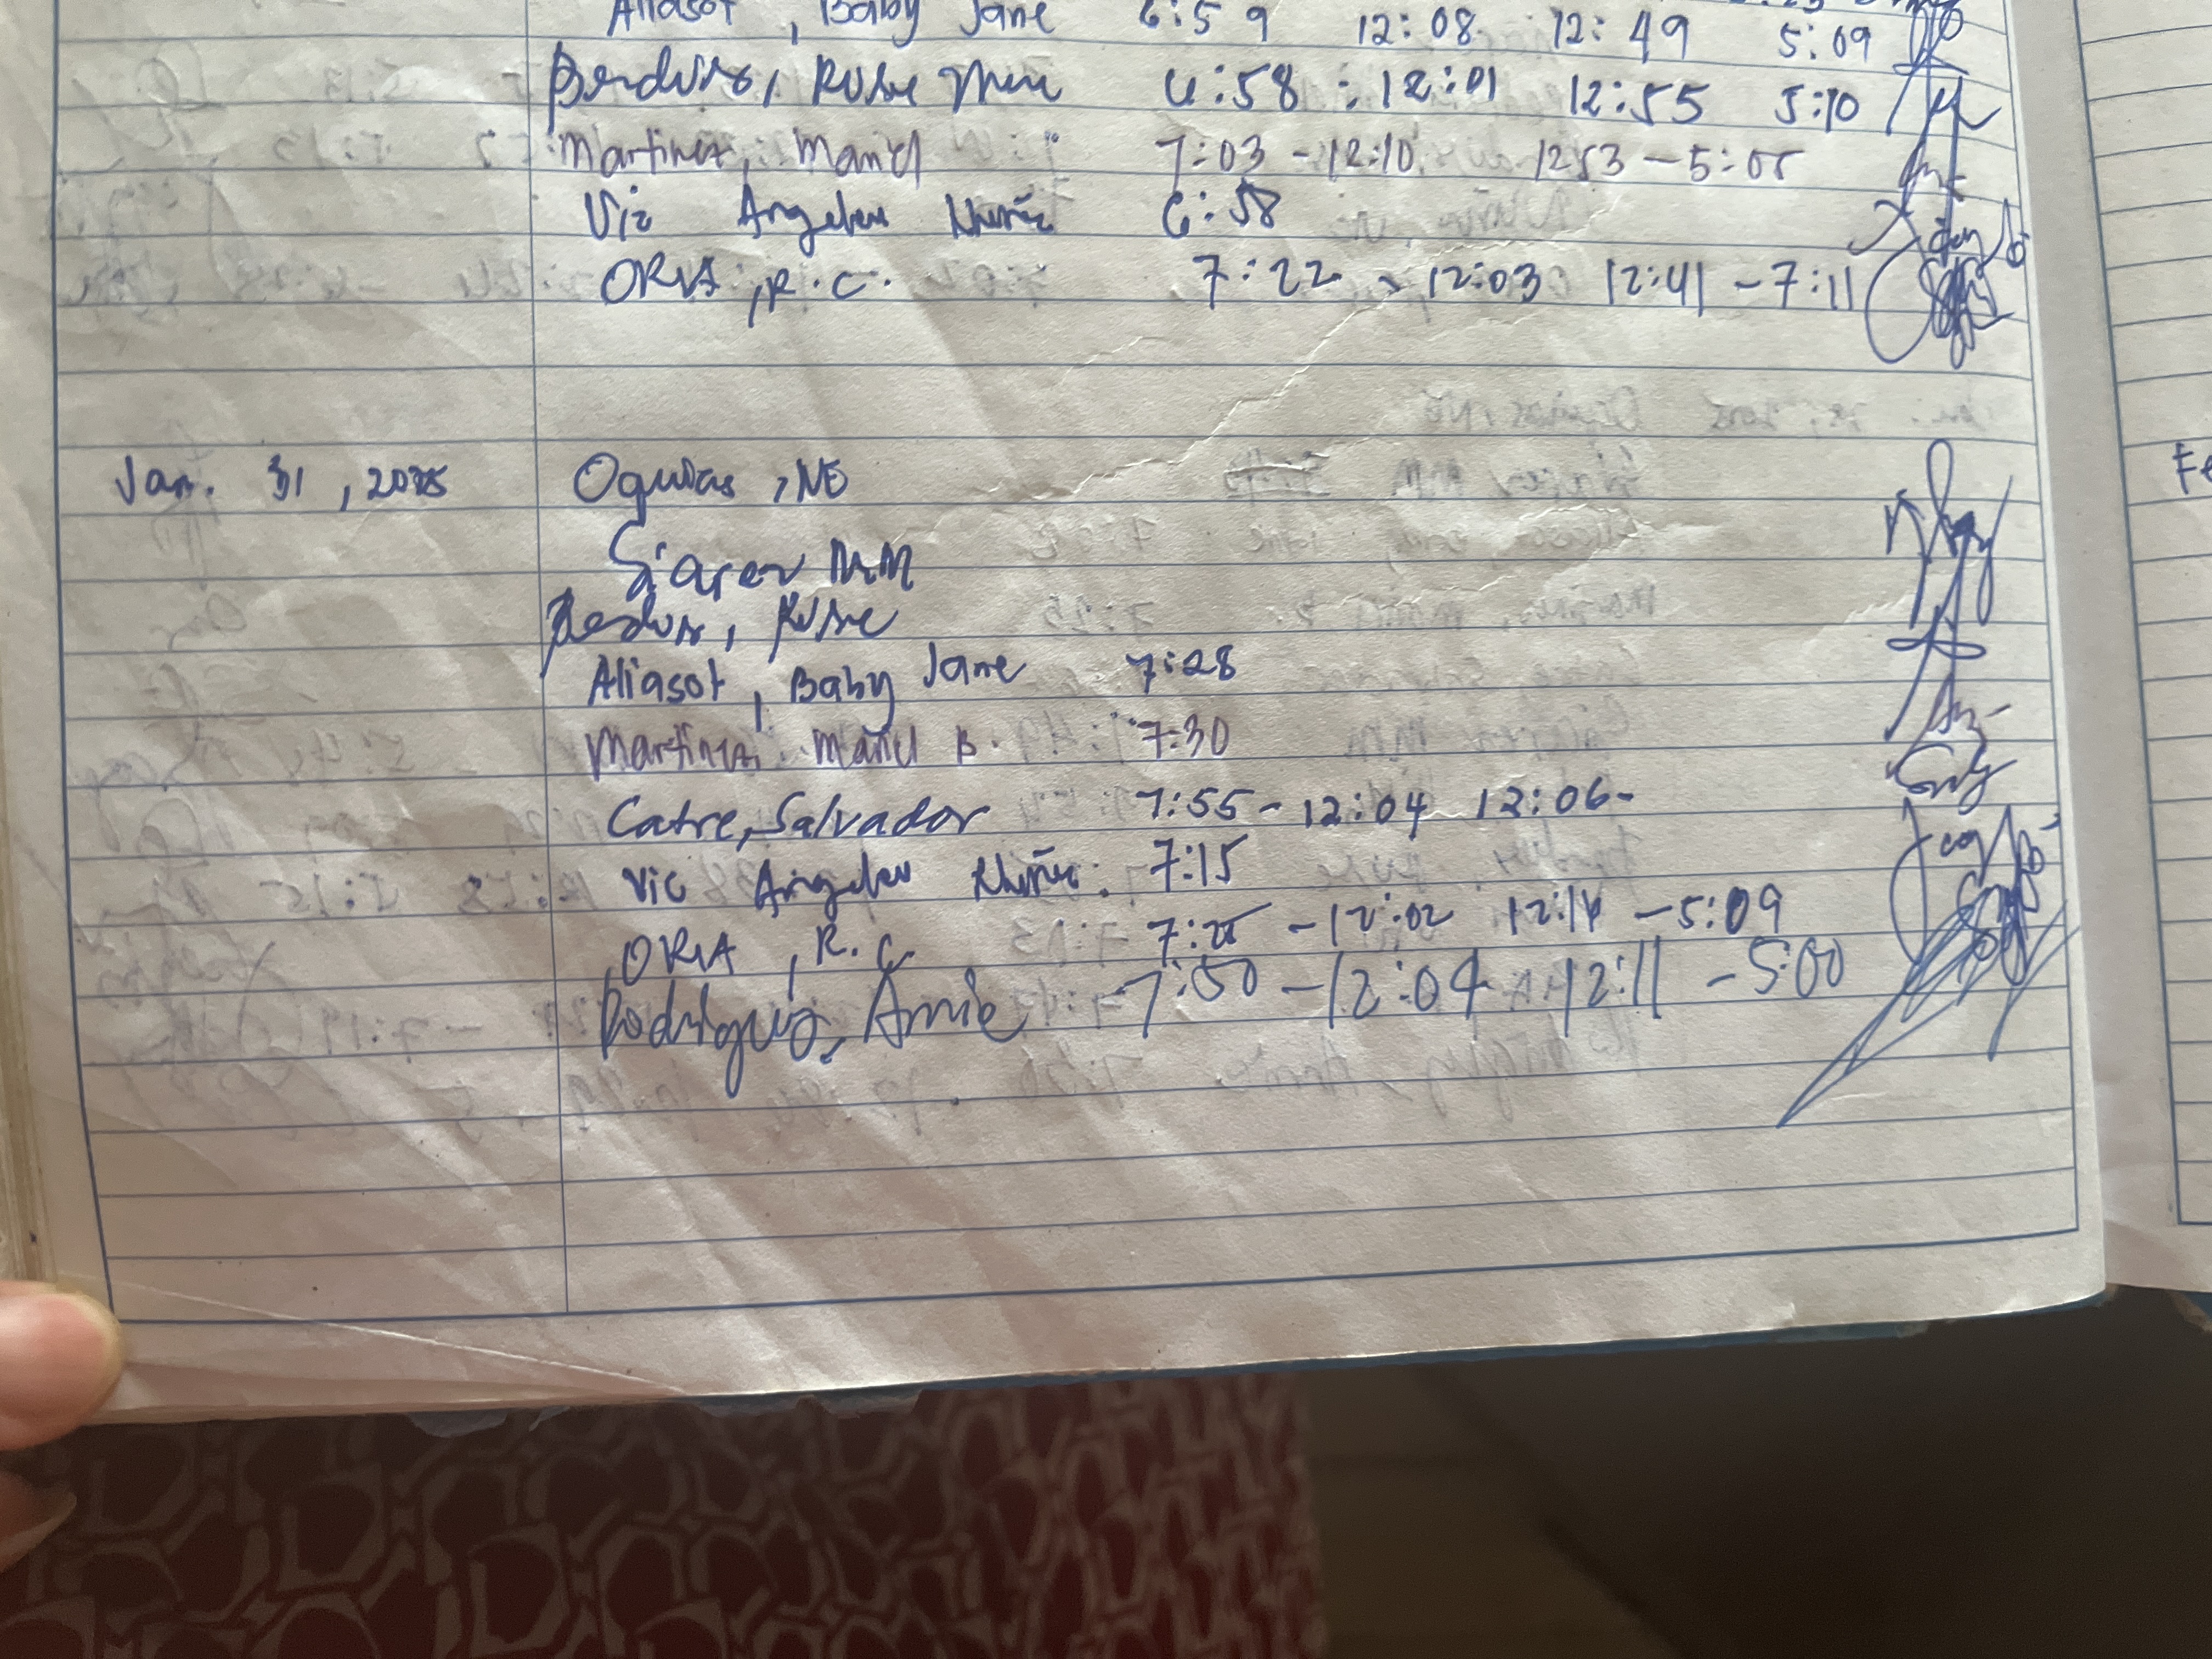 Aliasot, Baby Jane 6:59 12:08 12:49 5:09
Rose 6:58 : 12:01 12:55 5:10
Martinez, Manel 7:03 - 12:10 1253 - 5:05
Vic Angelew 6:58
ORIA, R.C. 7:22 - 12:03 12:41 - 7:11
Jan. 31, 2025 Oquias, NE
MM
Rose
Aliasot, Baby Jane 7:28
Martinez, Manel B. 7:30
Catre, Salvador 7:55 - 12:04 12:06-
Vic Angelew 7:15
ORIA, R.C. 7:25 - 12:02 12:14 - 5:09
Rodriguez, Arnie 7:50 - 12:04 12:11 - 5:00
Fe